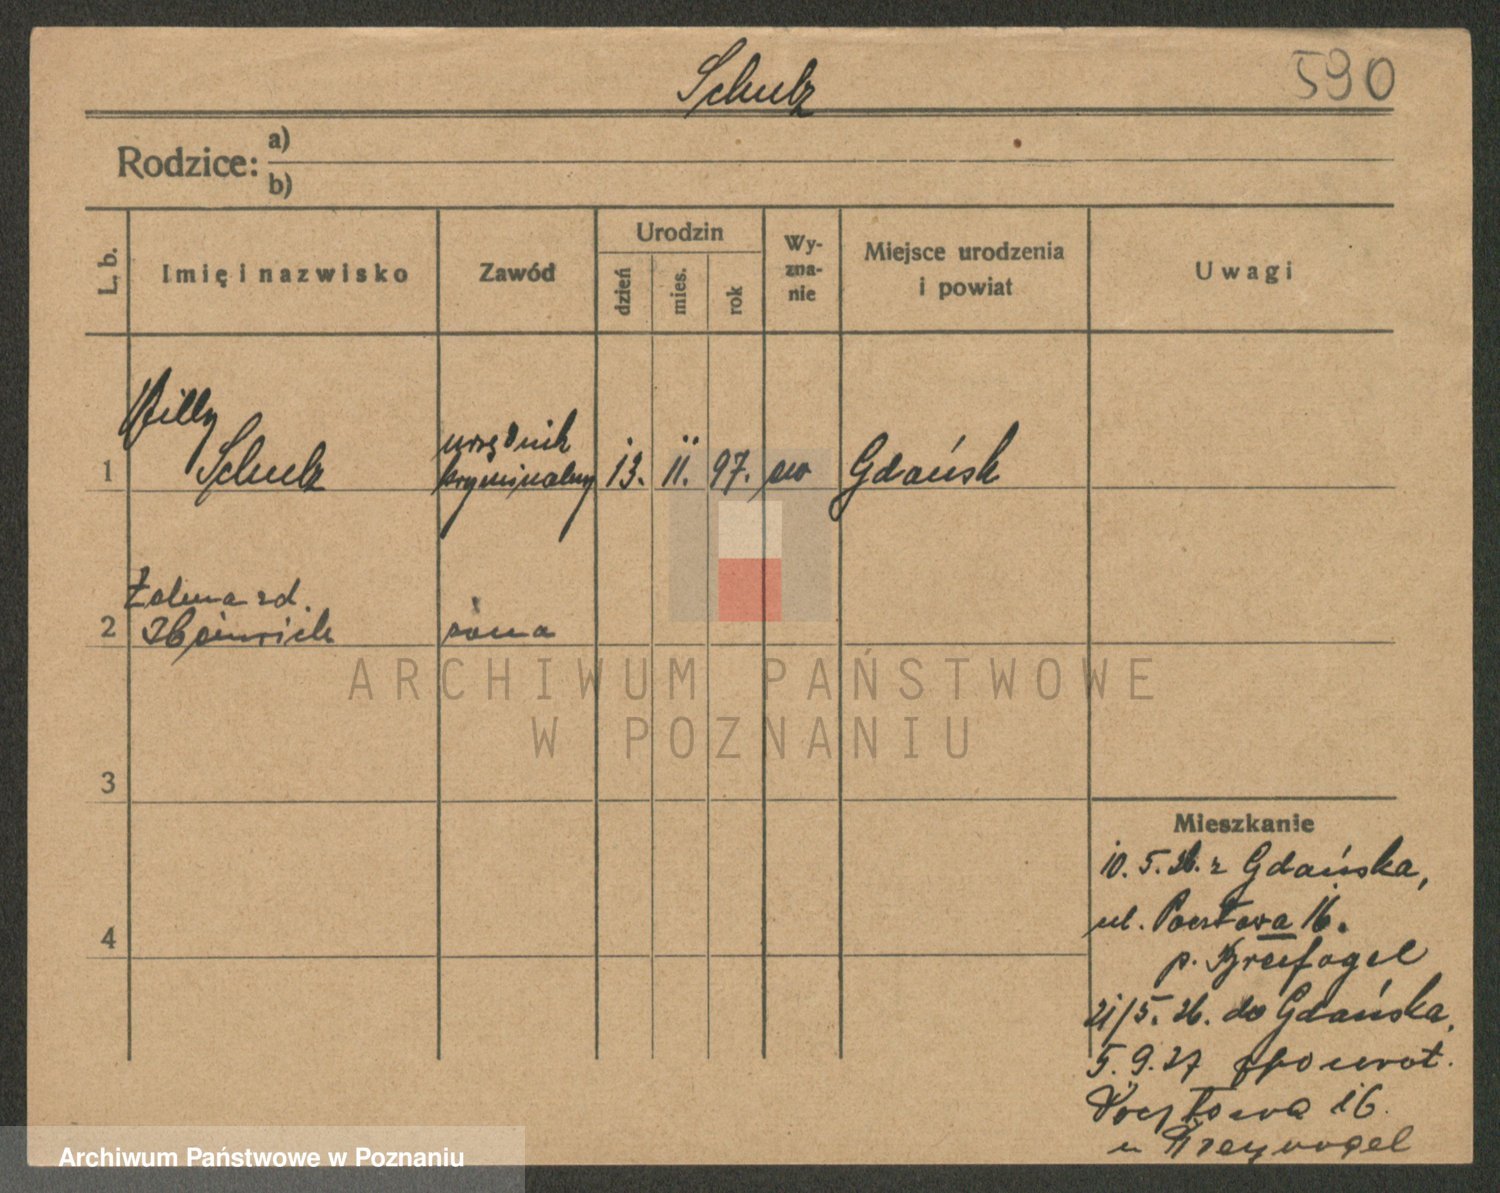 Schulz
590
Rodzice: a)
b)
L. b.
Imię i nazwisko
Zawód
Urodzin
dzień
mies.
rok
Wy-
zna-
nie
Miejsce urodzenia
i powiat
Uwagi
1
Willy
Schulz
urzędnik
kryminalny
13.
11.
97.
ew
Gdańsk
2
zd.
Heinrich
żona
3
4
Mieszkanie
10. 5. 26. z Gdańska,
ul. Pocztowa 16.
p.
21/5. 26. do Gdańska,
5. 9. 27 powrot.
Pocztowa 16.
u Freyvogel
ARCHIWUM PAŃSTWOWE
W POZNANIU
Archiwum Państwowe w Poznaniu